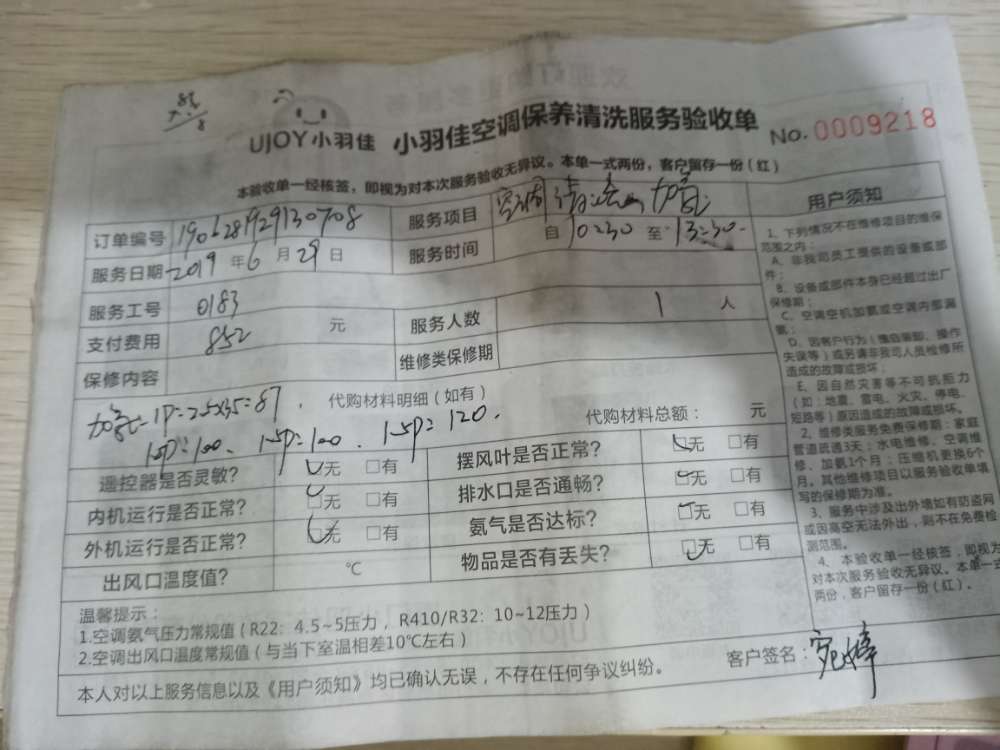 UJOY小羽佳 小羽佳空调保养清洗服务验收单 No. 0009218
本验收单一经核签，即视为对本次服务验收无异议。本单一式两份，客户留存一份（红）
订单编号 1906281929130708 服务项目 空调清洗 加氟
服务日期 2019 年 6 月 29 日 服务时间 自 10:30 至 13:30
服务工号 0183 服务人数 1 人
支付费用 852 元 维修类保修期
保修内容
代购材料明细（如有） 代购材料总额： 元
加氟 1P=25X35=87
1.5P=100、1.5P=100、1.5P=120.
遥控器是否灵敏？ □无 □有 摆风叶是否正常？ □无 □有
内机运行是否正常？ □无 □有 排水口是否通畅？ □无 □有
外机运行是否正常？ □无 □有 氨气是否达标？ □无 □有
出风口温度值？ ℃ 物品是否有丢失？ □无 □有
温馨提示：
1.空调氨气压力常规值（R22：4.5~5压力，R410/R32：10~12压力）
2.空调出风口温度常规值（与当下室温相差10℃左右）
本人对以上服务信息以及《用户须知》均已确认无误，不存在任何争议纠纷。
客户签名：
用户须知
1、下列情况不在维修项目的维保
范围之内：
A、非我司员工提供的设备或部
件；
B、设备或部件本身已经超过出厂
保修期；
C、空调空机加氨或空调内部漏
氨；
D、因客户行为（擅自拆卸、操作
失误等）或另请非我司人员检修所
造成的故障或损坏；
E、因自然灾害等不可抗拒力
（如：地震、雷电、火灾、停电、
短路等）原因造成的故障或损坏。
2、维修类服务免费保修期：家庭
管道疏通3天；水电维修、空调维
修、加氨1个月；压缩机更换6个
月。其他维修项目以服务验收单填
写的保修期为准。
3、服务中涉及出外墙如有防盗网
或因高空无法外出，则不在免费检
测范围。
4、本验收单一经核签，即视为
对本次服务验收无异议。本单一式
两份，客户留存一份（红）。